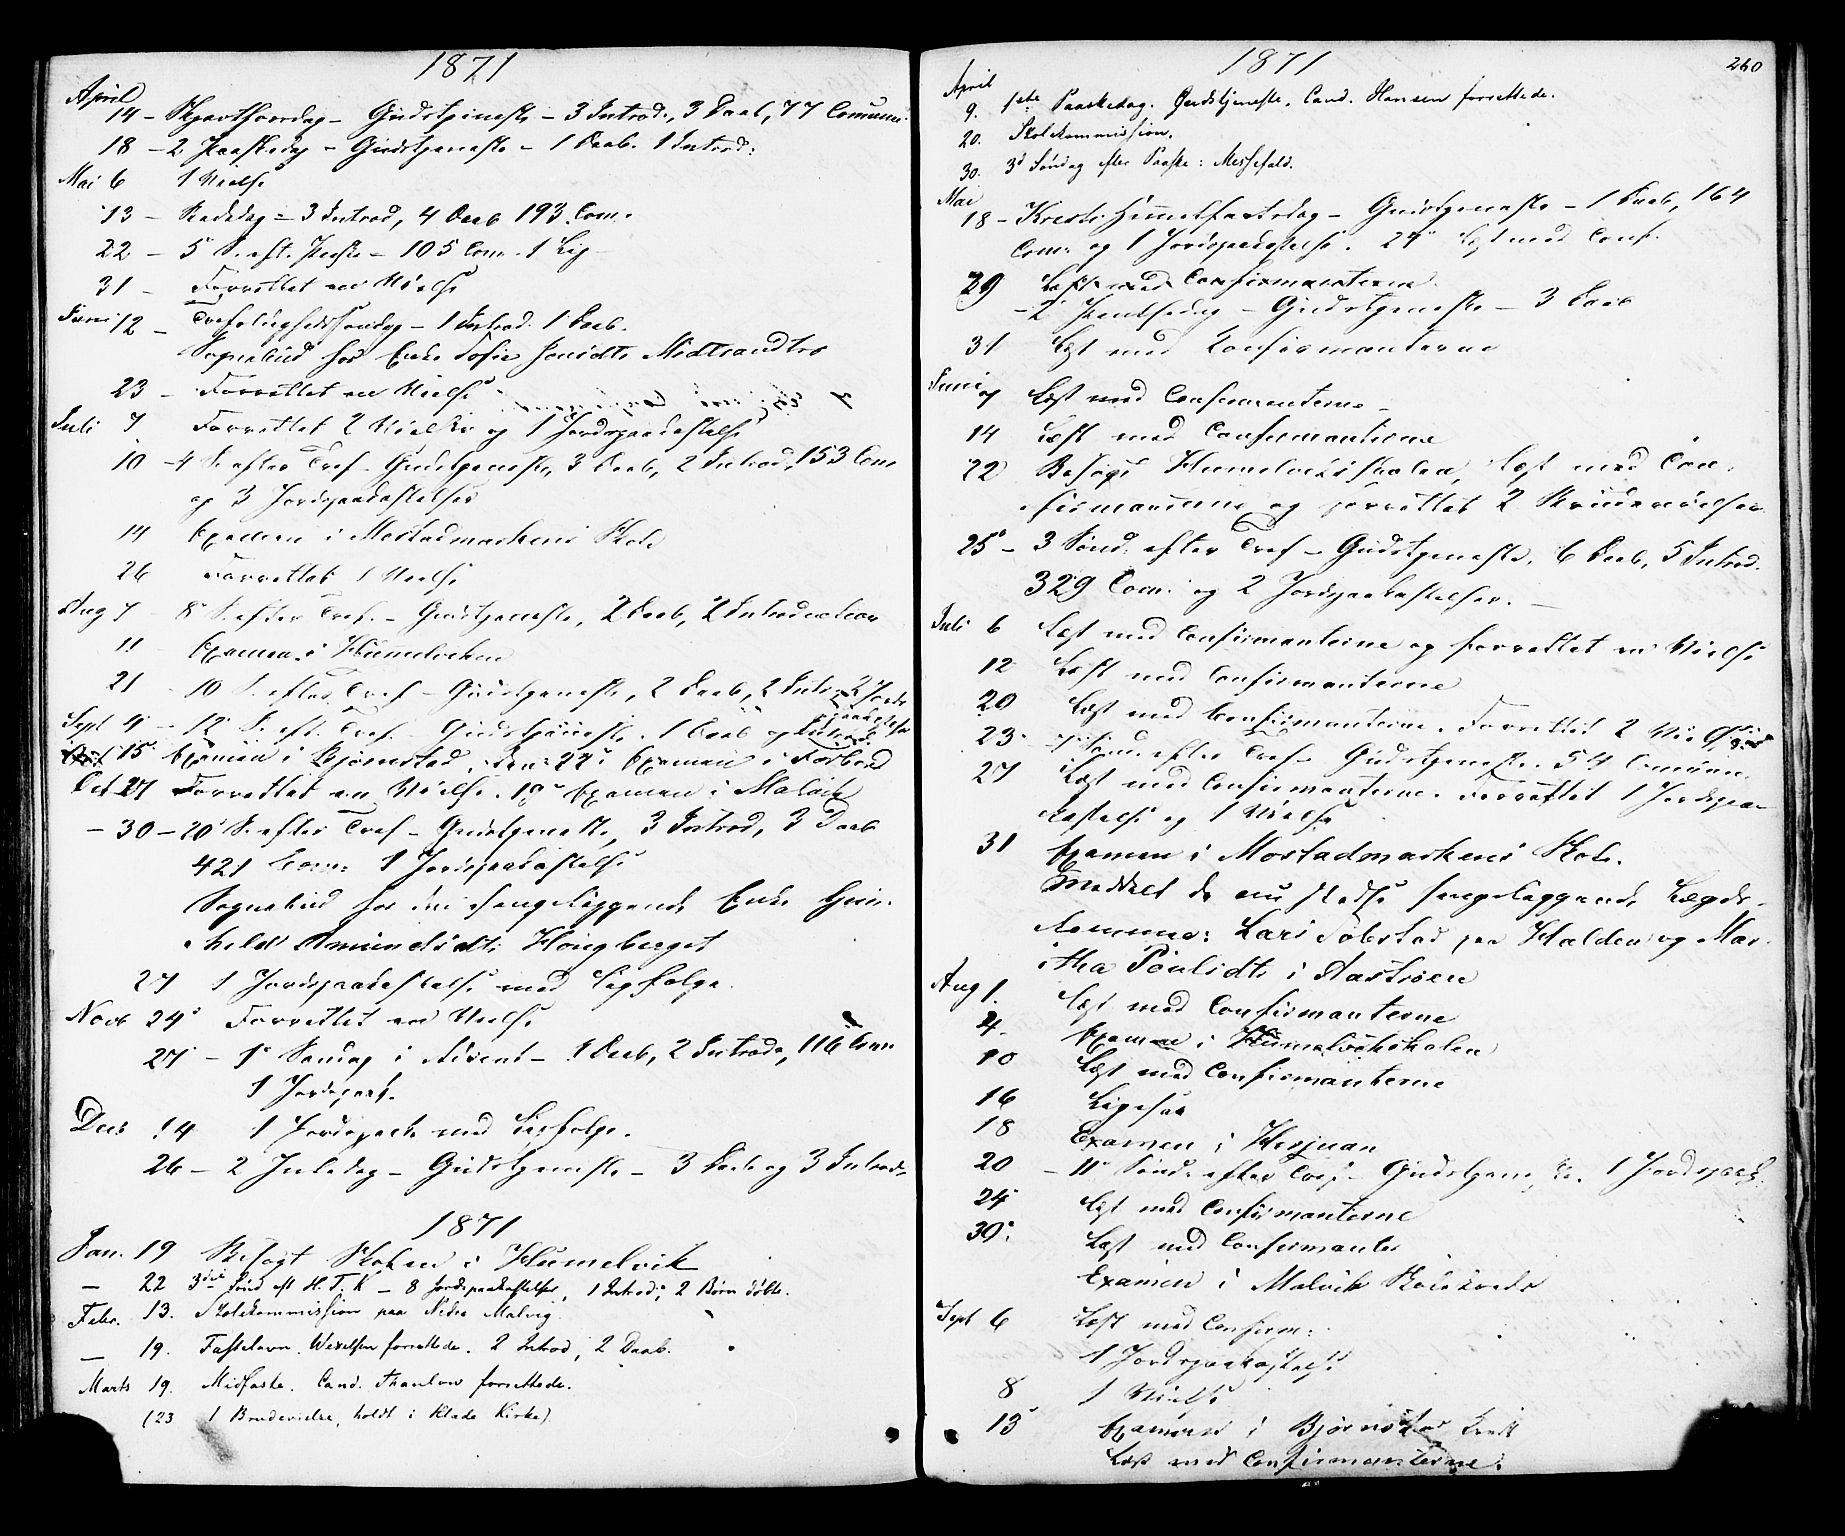 1871
April
14 - Skjærthorsdag - Gudstjeneste - 3 Introd., 3 Daab, 77 Comuni:
18 - 2 Paaskedag - Gudstjeneste - 1 Daab. 1 Introd:
Mai 6 1 Vielse
13 - Bededag - 3 Introd, 4 Daab 193 Com.
22 - 5 S. eft. Paaske - 105 Com. 1 Lig
31 - Forrettet en Vielse
Juni 12 - Trefoligheds Søndag - 1 Introd. 1 Daab.
Sognebud hos Enke Sofie Midtsandtrø
23 - Forrettet en Vielse
Juli 7 Forrettet 2 Vielser og 1 Jordspaakastelse
10 - 4 S. efter Tref - Gudstjeneste, 3 Daab, 2 Introd, 153 Com
og 3 Jordspaakastelser
14 Examen i Mostadmarkens Skole
26 Forrettet 1 Vielse
Aug 7 - 8 S. efter Tref. - Gudstjeneste, 2 Daab, 2 Introduction
11 Examen i Hummelviken
21 - 10 S. efter Tref - Gudstjeneste, 2 Daab, 2 Introd 2 Jords
paakastelse
Sept 4 - 12 S. eft. Tref. - Gudstjeneste. 1 Daab og Introd.
15 Examen i Bjørnstad, den 22 Examen i Forbord
Oct 27 Forrettet en Vielse. 19 Examen i Malvik
- 30 - 20 S. efter Tref - Gudstjeneste, 3 Introd, 3 Daab
421 Com: 1 Jordspaakastelse
Sognebud hos den sengeliggende Enke Gun-
hild Amundsdtr Høugberget
27 1 Jordspaakastelse med Ligfølge.
Novb 24 Forrettet en Vielse
27 - 1 Søndag i Advent - 1 Daab, 2 Introd, 116 Com
1 Jordspaak.
Decb 14 1 Jordspaak med Ligfølge.
26 - 2 Juledag - Gudstjeneste - 3 Daab og 3 Introd.
1871
Jan. 19 Besøgt Skolen i Hummelvik
- 22 3die Sønd eft H. T. K - 8 Jordspaakastelser, 1 Introd; 2 Børn døbte.
Febr. 13. Skolekommission paa Nedre Malvig.
- 19. Fastelavn. Wexelsen forrettede. 2 Introd, 2 Daab.
Marts 19. Midfaste. Cand. Thaulow forrettede.
(23 1 Brudevielse, holdt i Klade Kirke)
1871
260
April
9. 1ste Paaskedag. Gudstjeneste. Cand. Hansen forrettede.
20. Skolekommission.
30. 3d Søndag efter Paaske: Messefald.
Mai
18 - Kristi Himmelfartsdag - Gudstjeneste - 1 Daab, 164
Com: og 1 Jordspaakastelse. 24 Læst med Conf.
29 Læst med Confirmanterne
- 2 Pintsedag - Gudstjeneste - 3 Daab
31 Læst med Konfirmanterne
Juni 7 Læst med Confirmanterne -
14 Læst med Confirmanterne
22 Besøgt Hummelvikskolen, læst med Con-
firmanterne og forrettet 2 Brudevielser
25 - 3 Sønd: efter Tref - Gudstjeneste, 6 Daab, 5 Introd.
329 Com: og 2 Jordspaakastelser. -
Juli 6 Læst med Confirmanterne og forrettet en Vielse
12 Læst med Confirmanterne
20 Læst med Confirmanterne. Forrettet 2 Vielser
23 - 7 Sønd. efter Tref - Gudstjeneste. 54 Comuni
27 Læst med Confirmanterne. Forrettet 1 Jordspaa-
kastelse og 1 Vielse
31 Examen i Mostadmarkens Skole.
Meddelt de stedse sengeliggende Lægds-
lemmer: Lars Solstad paa Halden og Mar-
tha Poulsdtr i Aastrøen
Aug 1. Læst med Confirmanterne
4 Examen i Hummelvikskolen
10 Læst med Confirmanterne
16 Ligesaa
18 Examen i Hesjuan
20 - 11 Sønd. efter Tref - Gudstjeneste. 1 Jordspaak.
24 Læst med Confirmanterne
30: Læst med Confirmanter
Examen i Malvik Skolekreds
Sept 6 Læst med Confirm:
1 Jordspaakastelse
8 1 Vielse
13 Examen i Bjørnstad Kreds
Læst med Confirmanterne.